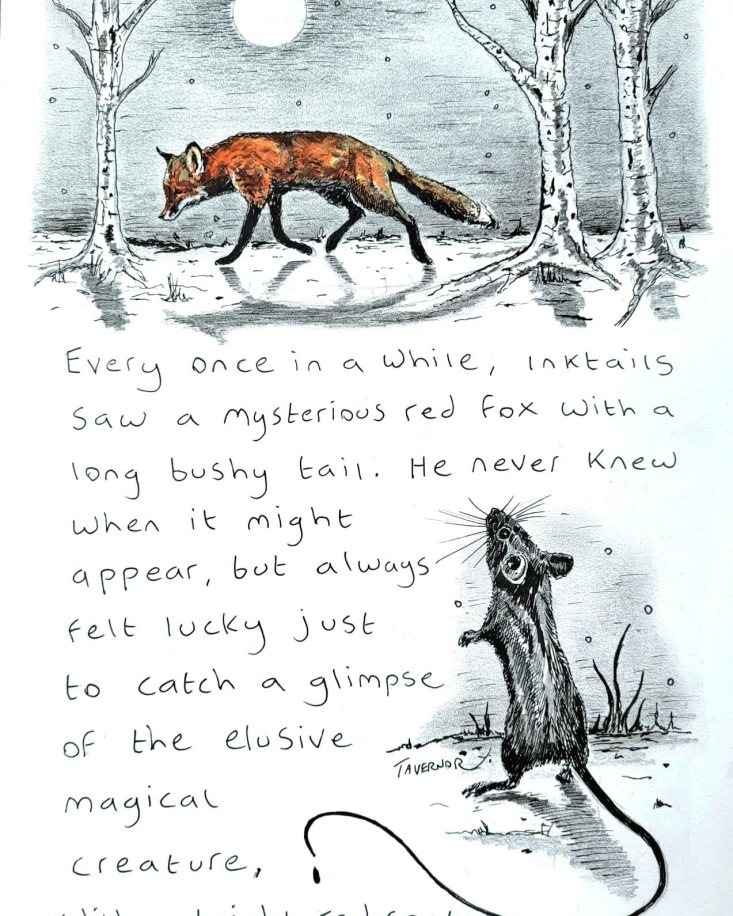 Every once in a while, Inktails
saw a mysterious red fox with a
long bushy tail. He never knew
when it might
appear, but always
felt lucky just
to catch a glimpse
of the elusive
magical
creature,
TAVERNOR